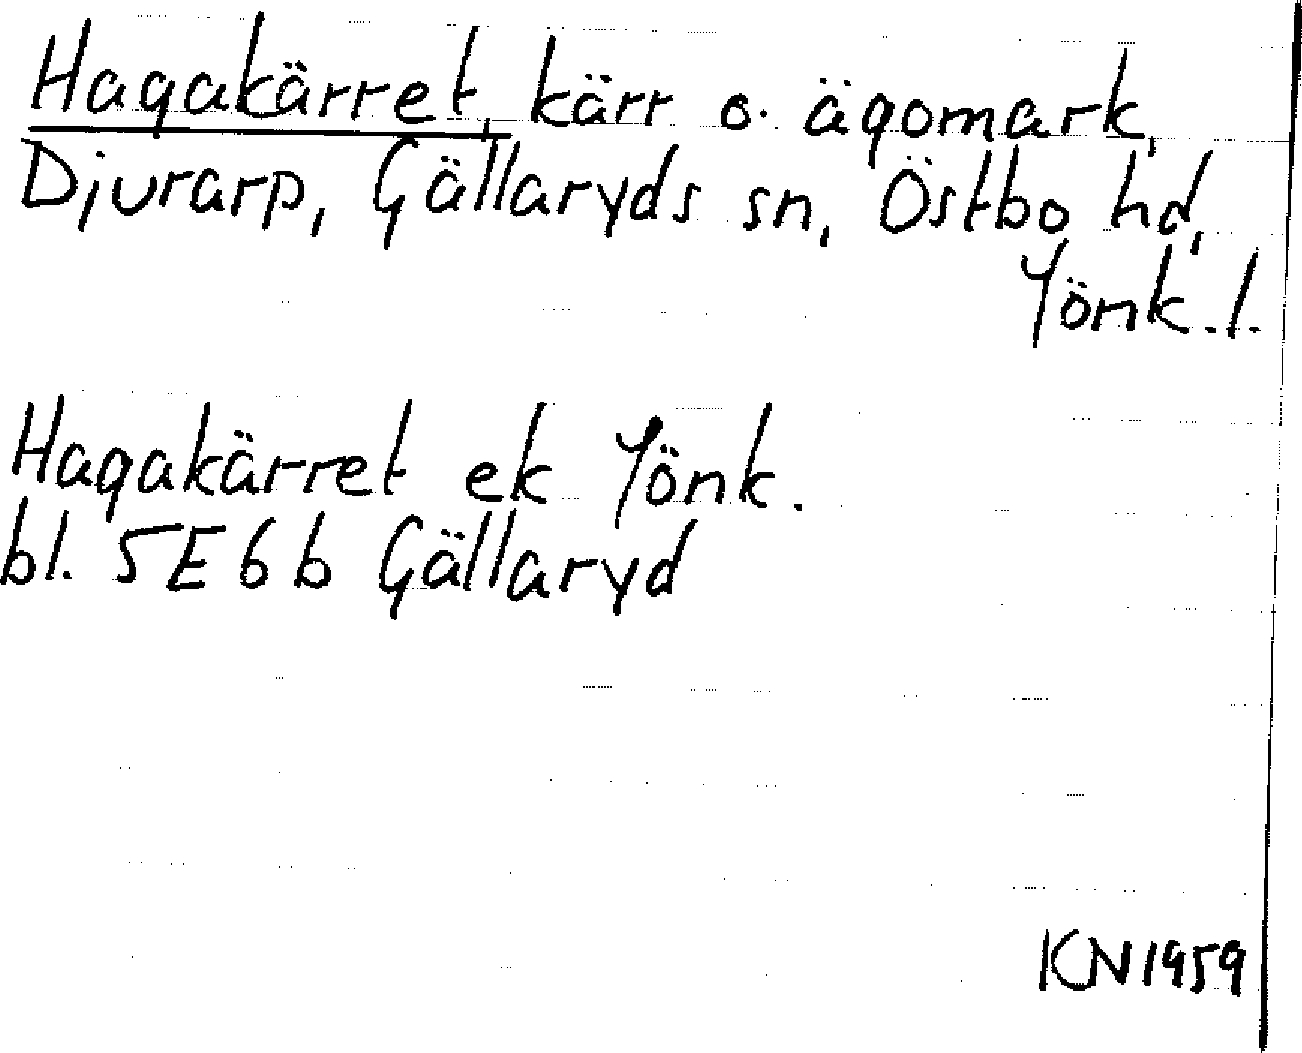 Hagakärret, kärr o. ägomark,
Djurarp, Gällaryds sn, Östbo hd,
Jönk. l.
Hagakärret ek Jönk.
bl. 5E6b Gällaryd
KN1959